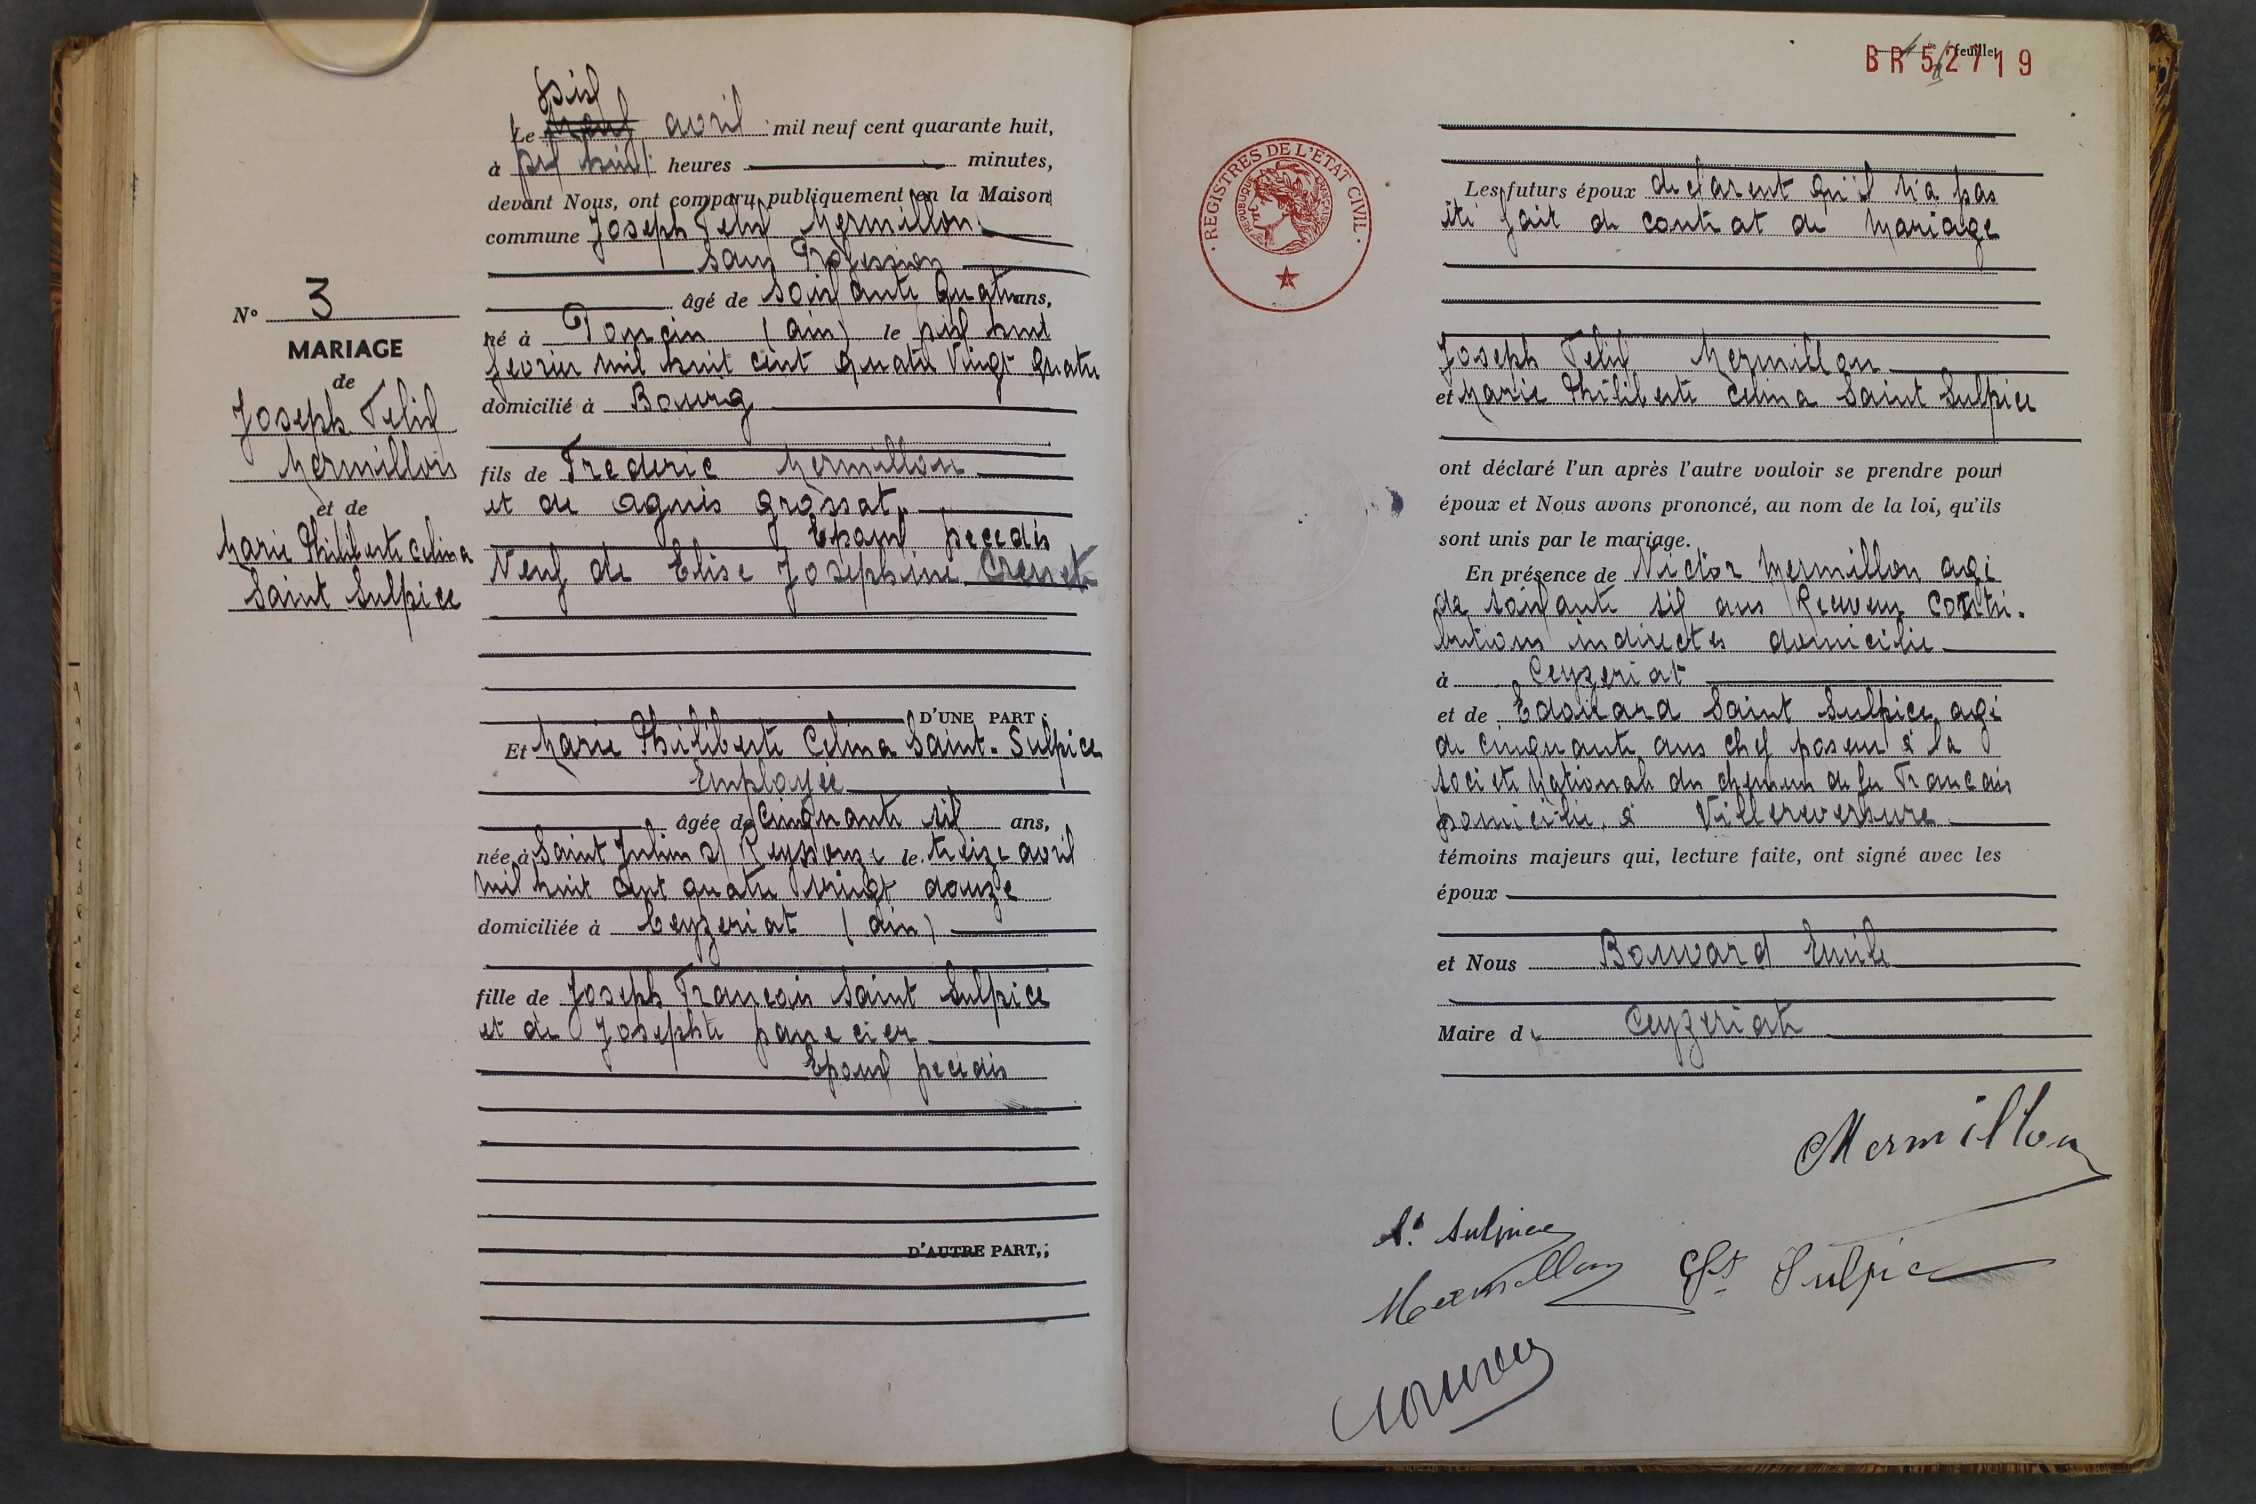 dix
Le avril mil neuf cent quarante huit,
à dix huit heures minutes,
devant Nous, ont comparu publiquement en la Maison
commune Joseph Felix Mermillon
sans Profession
âgé de soixante quatre ans,
né à Poncin (ain) le dix huit
fevrier mil huit cent quatre vingt quatre
domicilié à Bourg
fils de Frederic Mermillon
et de agnès grossat
Epoux decedés
Veuf de Elise Josephine
N° 3
MARIAGE
de
Joseph Felix
Mermillon
et de
Marie Philiberte Celina
Saint Sulpice
D'UNE PART ;
Et Marie Philiberte Celina Saint-Sulpice
Employée
âgée de cinquante six ans,
née à Saint Julien s/ Reyssouze le treize avril
mil huit cent quatre vingt douze
domiciliée à Ceyzeriat (ain)
fille de Joseph Francois Saint Sulpice
et de Josephte panecier
Epoux decedés
D'AUTRE PART,;
feuillet
BR 52719
· REGISTRES DE L'ETAT CIVIL ·
REPUBLIQUE FRANÇAISE
Les futurs époux declarent qu'il n'a pas
été fait de contrat de mariage
Joseph Felix Mermillon
et Marie Philiberte Celina Saint Sulpice
ont déclaré l'un après l'autre vouloir se prendre pour
époux et Nous avons prononcé, au nom de la loi, qu'ils
sont unis par le mariage.
En présence de Victor Mermillon agé
de soixante six ans Receveur Contri-
butions indirectes domicilié
à Ceyzeriat
et de Edouard Saint Sulpice agé
de cinquante ans chef poseur à la
societe National du chemin de fer Francais
domicilié à Villereversure
témoins majeurs qui, lecture faite, ont signé avec les
époux
et Nous Bouvard Emile
Maire de Ceyzeriat
Mermillon
St Sulpice
Mermillon St Sulpice